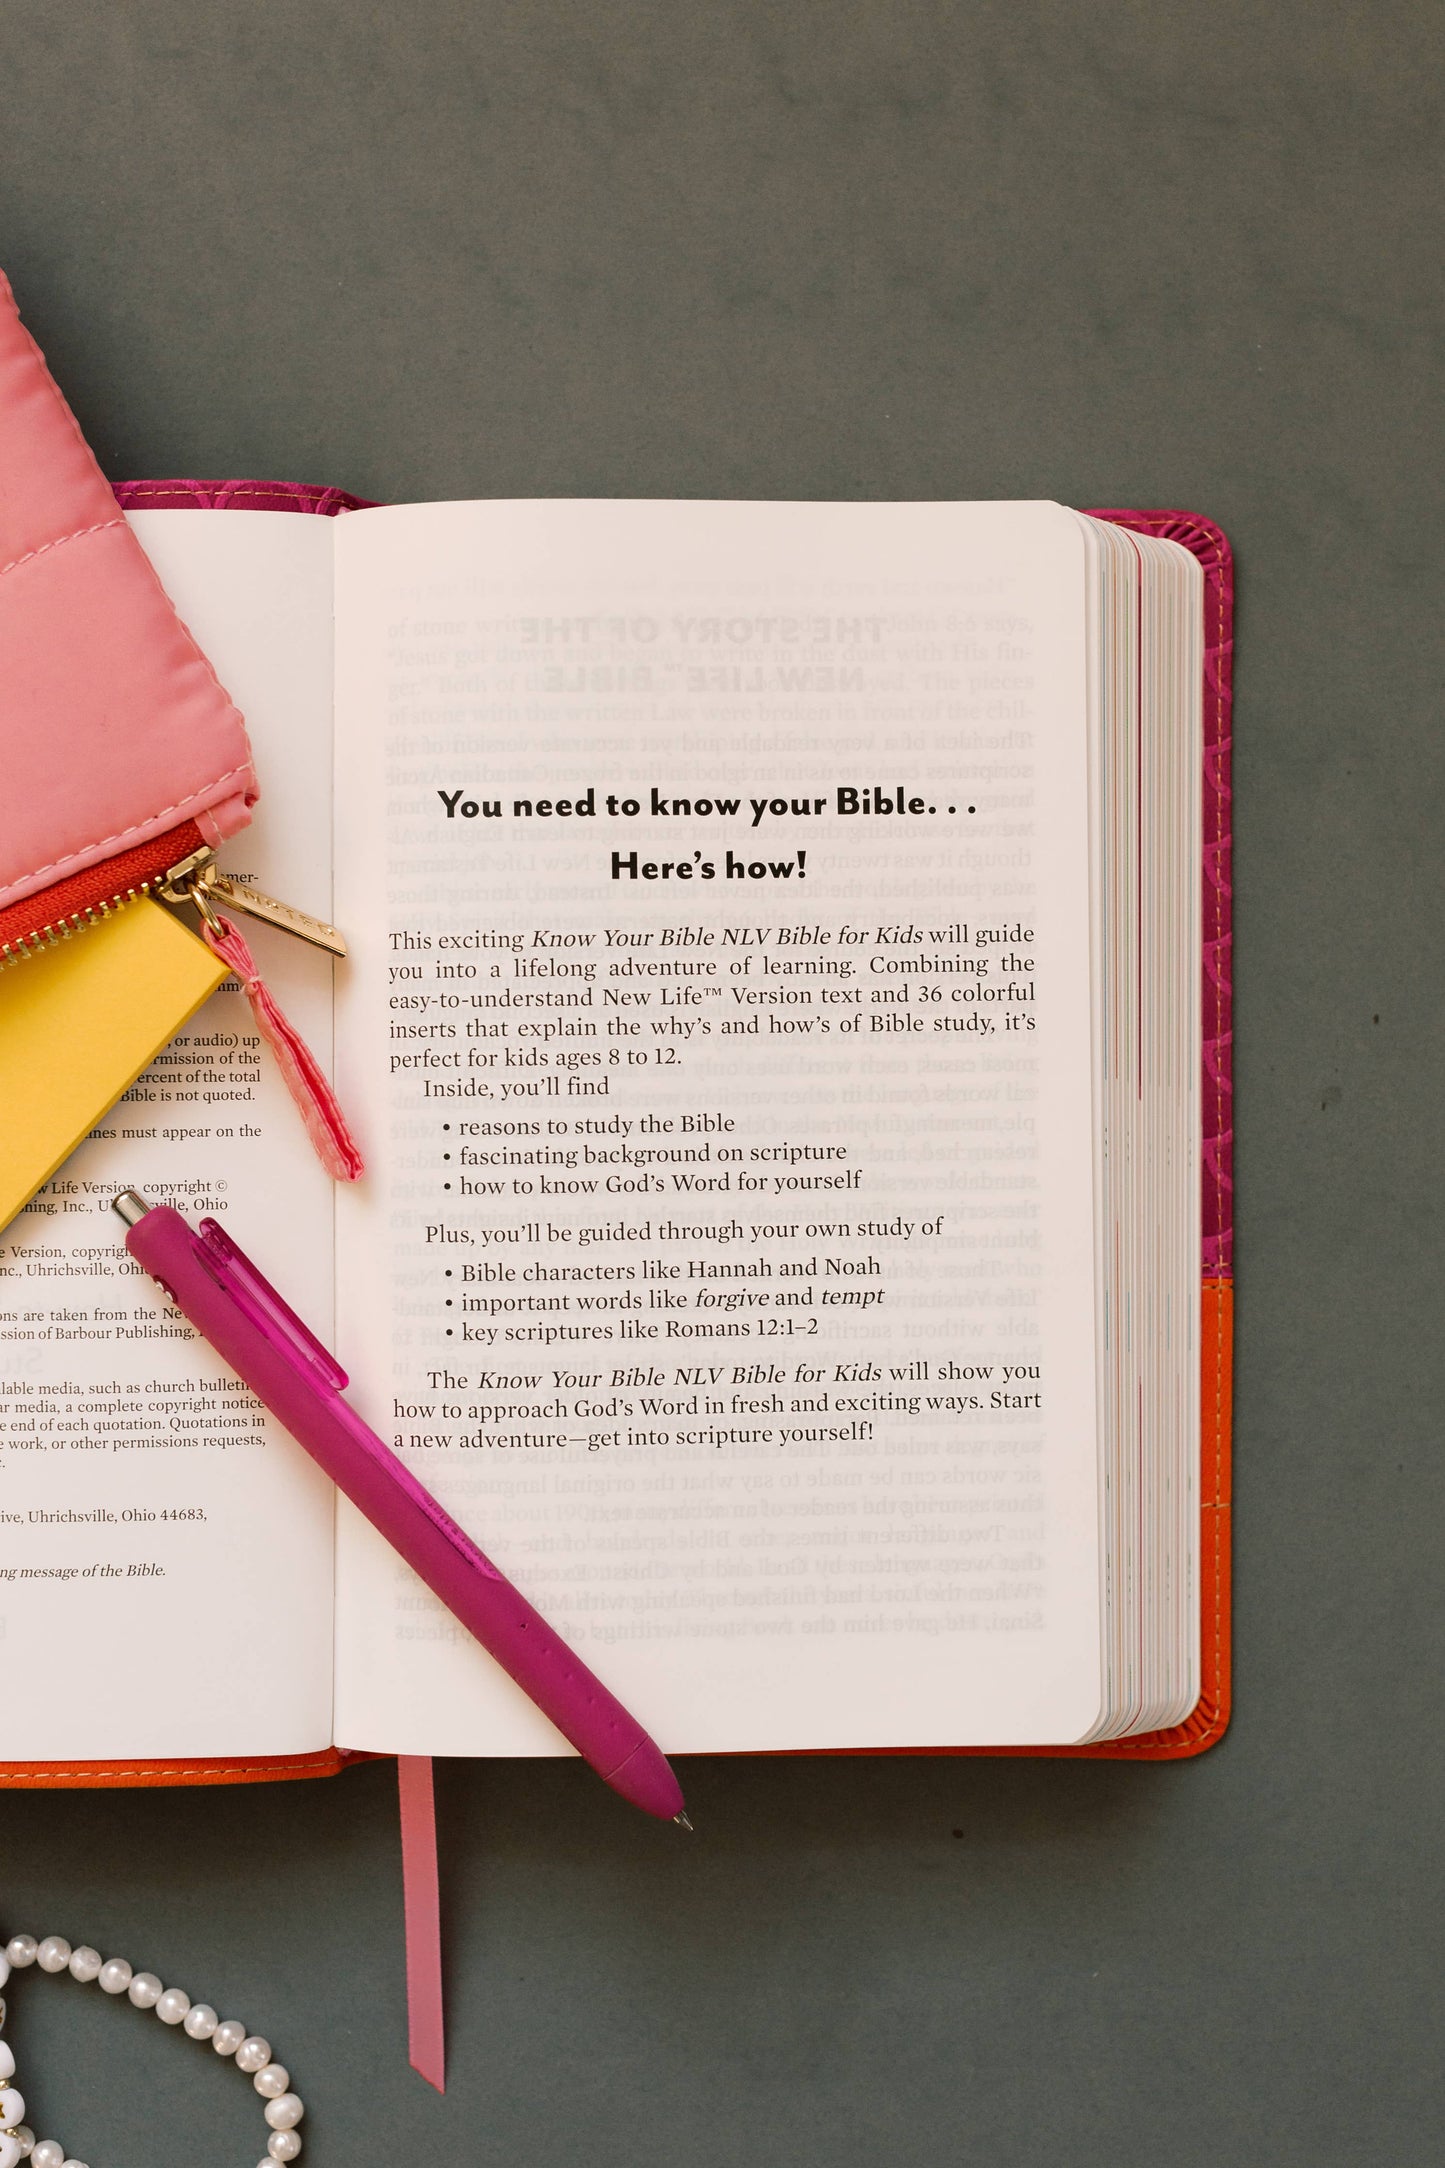 mer-
, or audio) up
rmission of the
ercent of the total
Bible is not quoted.
nes must appear on the
w Life Version, copyright ©
hing, Inc., U ville, Ohio
e Version, copyrig
nc., Uhrichsville, Ohi
ons are taken from the Ne
ission of Barbour Publishing,
lable media, such as church bulleti
ar media, a complete copyright notice
e end of each quotation. Quotations in
e work, or other permissions requests,
ive, Uhrichsville, Ohio 44683,
ng message of the Bible.
You need to know your Bible. . .
Here’s how!
This exciting Know Your Bible NLV Bible for Kids will guide
you into a lifelong adventure of learning. Combining the
easy-to-understand New Life™ Version text and 36 colorful
inserts that explain the why’s and how’s of Bible study, it’s
perfect for kids ages 8 to 12.
Inside, you’ll find
• reasons to study the Bible
• fascinating background on scripture
• how to know God’s Word for yourself
Plus, you’ll be guided through your own study of
• Bible characters like Hannah and Noah
• important words like forgive and tempt
• key scriptures like Romans 12:1–2
The Know Your Bible NLV Bible for Kids will show you
how to approach God’s Word in fresh and exciting ways. Start
a new adventure—get into scripture yourself!